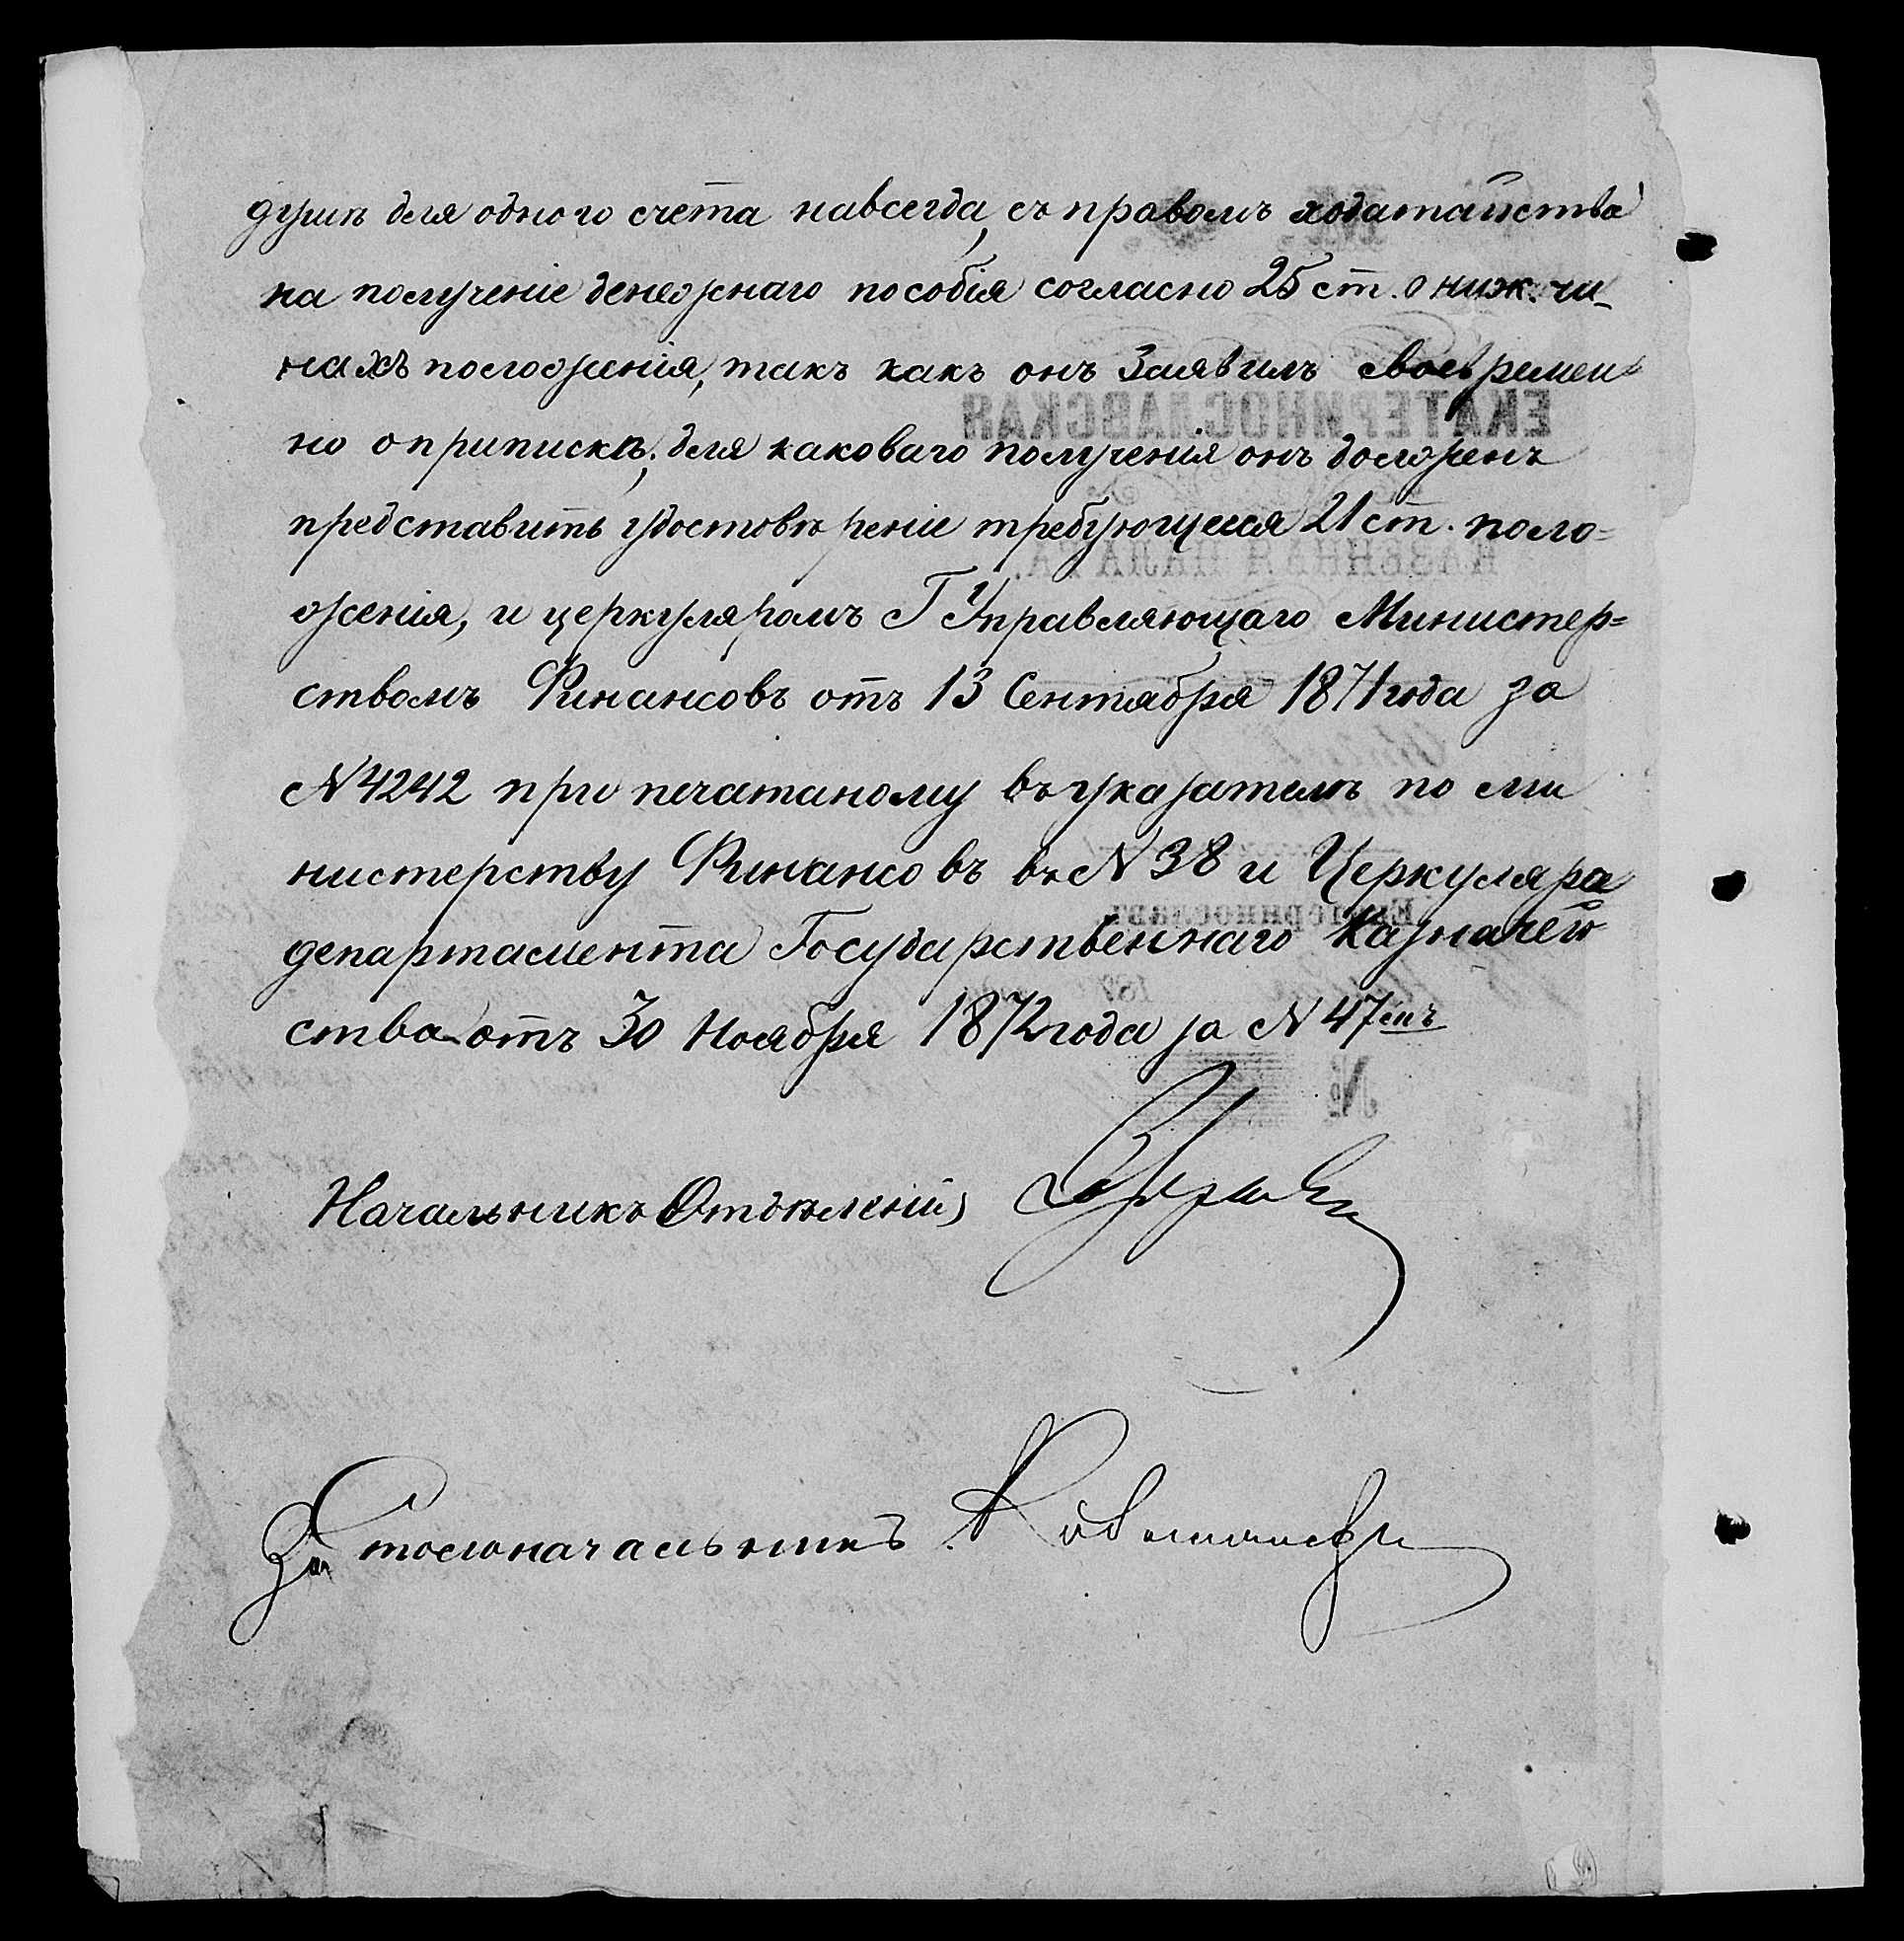 душѣ для одного счета навсегда, съ правомъ ходатайства
на полученіе денежнаго пособія согласно 25 ст. о ниж. чи-
нахъ положенія, такъ какъ онъ заявилъ своевремен
но о припискѣ; для каковаго полученія онъ долженъ
представить удостовѣреніе требующееся 21 ст. поло=
женія, и церкуляромъ Г Управляющаго Министер=
ствомъ Финансовъ отъ 13 Сентября 1871 года за
N 4242 при печатаному въ указателѣ по ми
нистерству Финансовъ въ N 38 и Церкуляра
департамента Государственнаго Казначей
ства отъ 30 Ноября 1872 года за N 47
Начальникъ Отдѣленія
За Столоначальникъ
ЕКАТЕРИНОСЛАВСКАЯ
КАЗЕННАЯ ПАЛАТА.
Екатеринославъ.
187
№